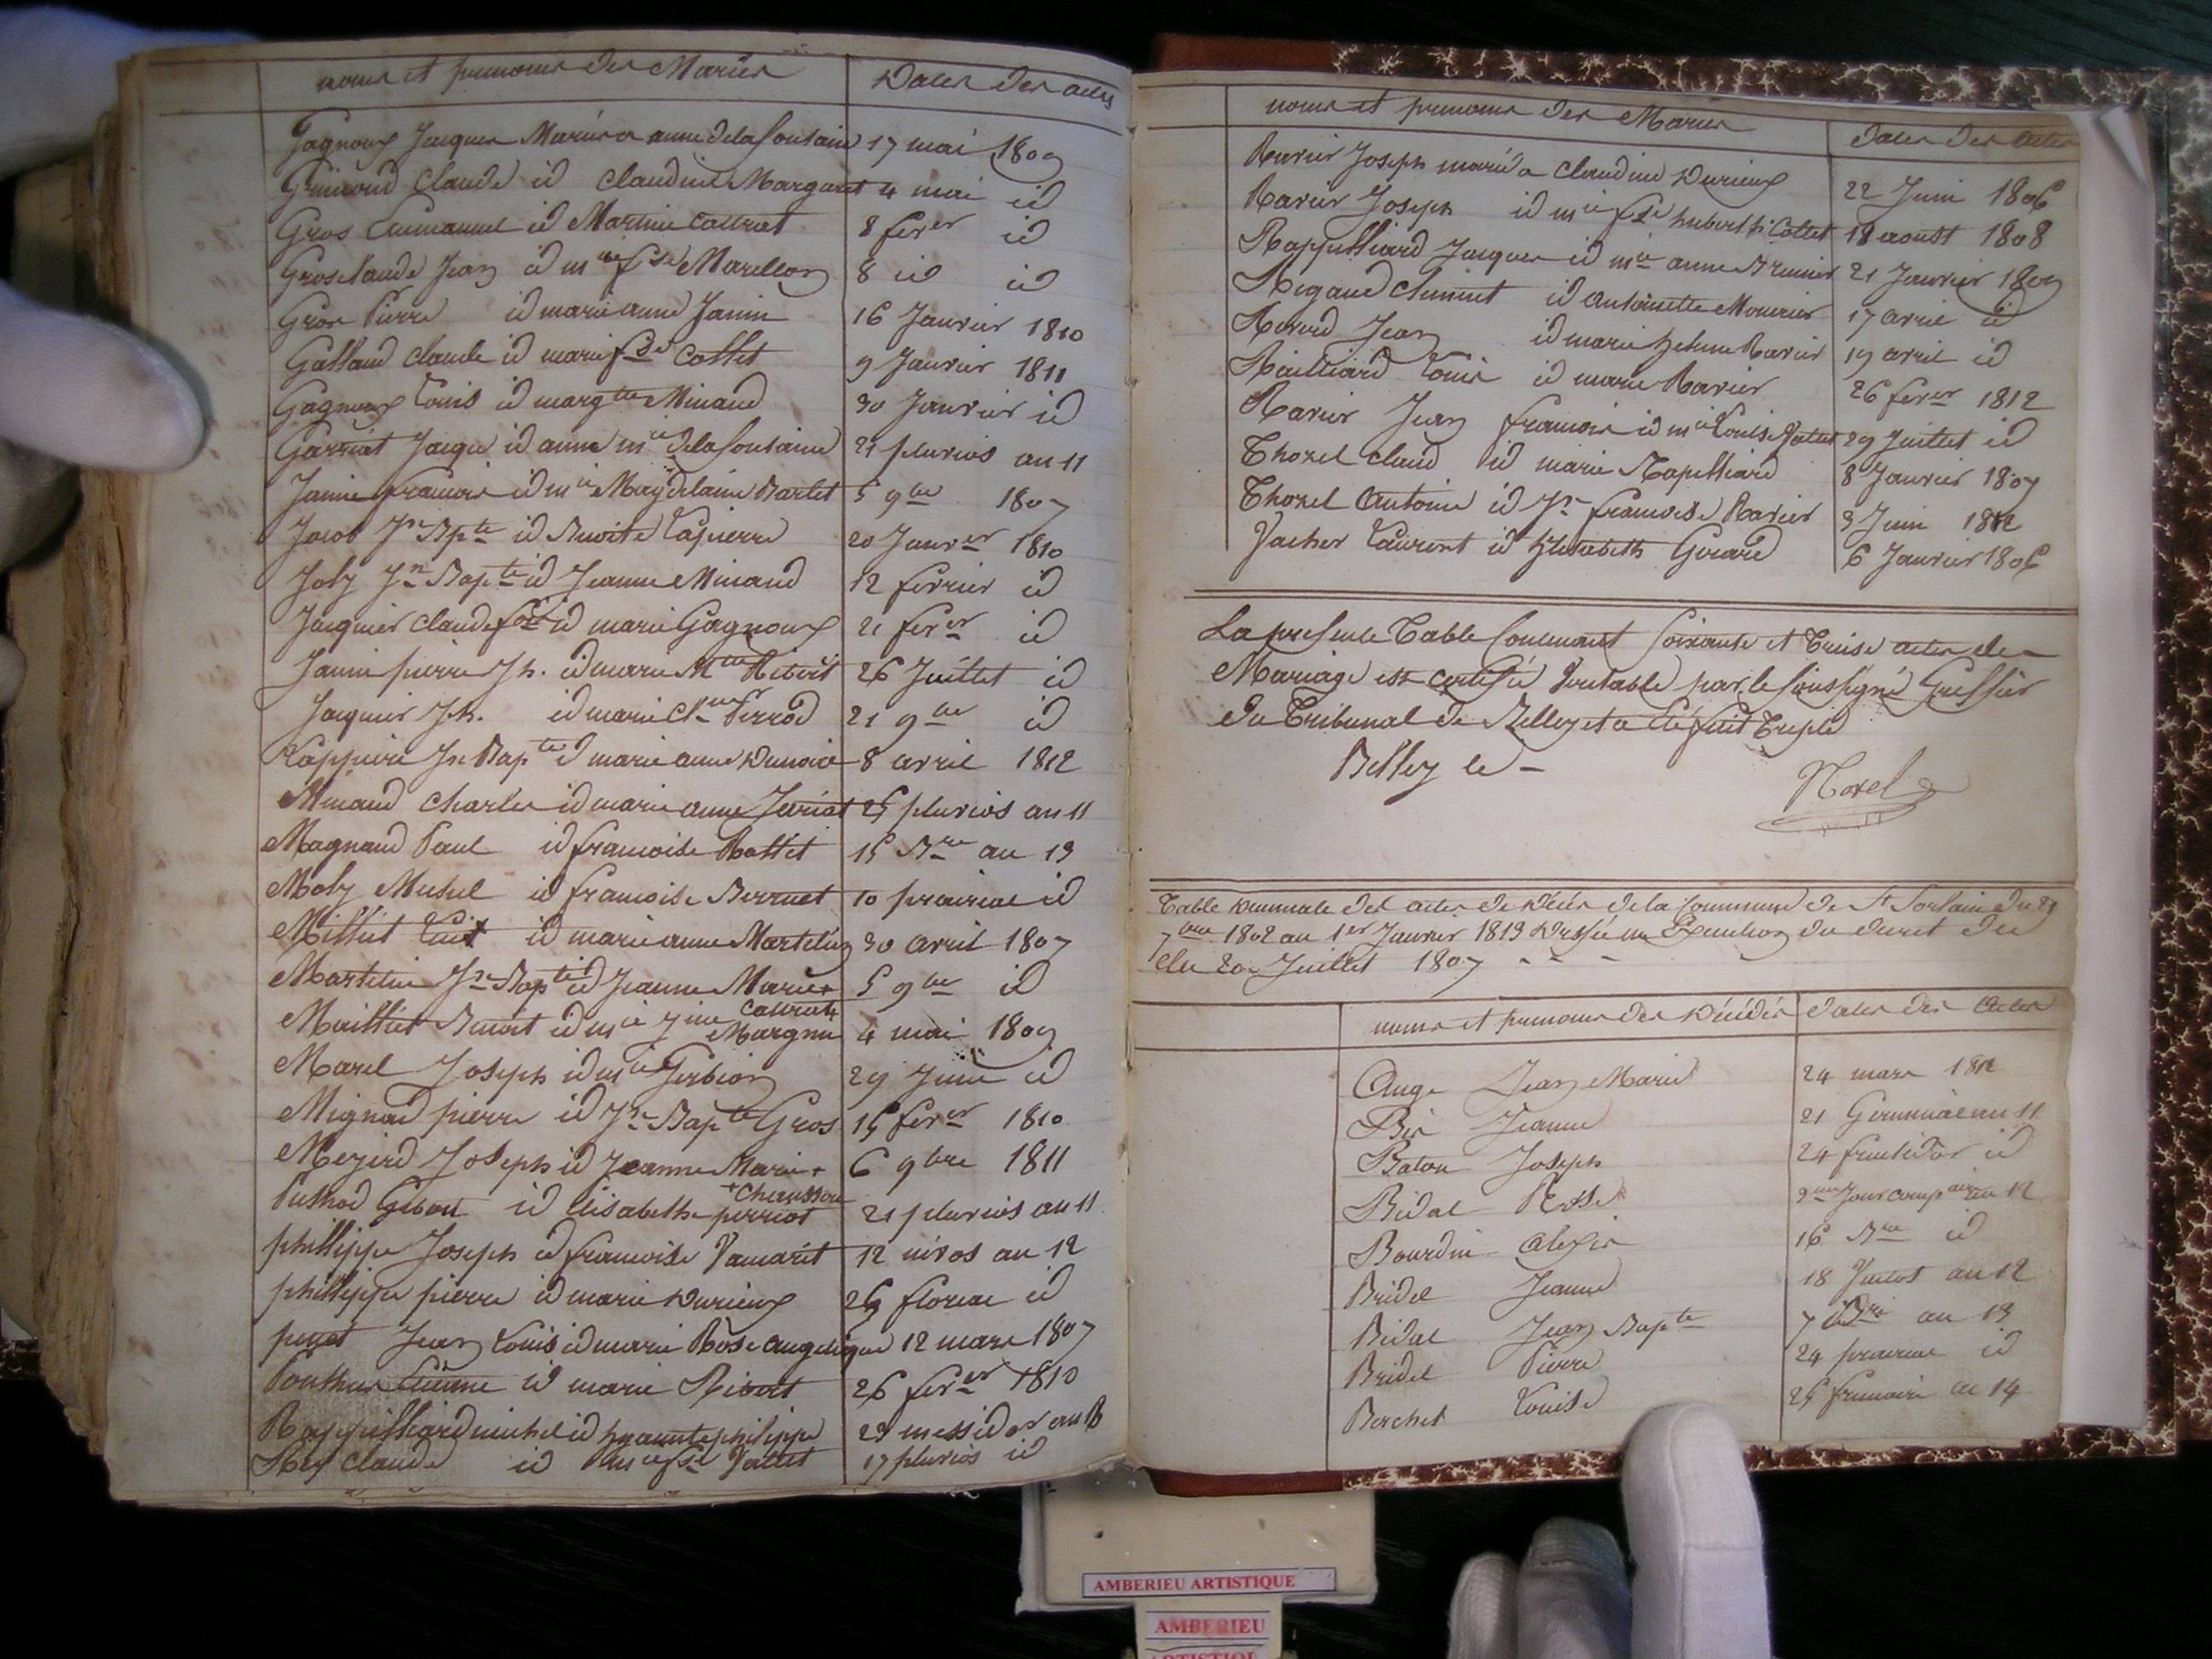 noms et prenoms des Mariés
Dates des actes
Gagnoux Jacques Marié a anne delafontaine 17 mai 1809
Grimond Claude id Claudine Margaret 4 mai id
Gros Emmanuel id Marie Cattrat 8 fever id
Grosclaude Jean id mie fse Marellon 8 id id
Gros Pierre id marie anne Janin 16 Janvier 1810
Galland claude id marie fse Collet 9 Janvier 1811
Gagnoux Louis id margte Minaud 30 Janvier id
Garriat Jacque id anne mie delafontaine 21 pluvios an 11
Janin francois id mie Magdelaine Barlet 5 9bre 1807
Jacob Jn Bpte id Benoite Lapierre 20 Janver 1810
Joly Jn Bapte id Jeanne Minaud 12 fevrier id
Jacquier claude fois id marie Gagnoux 21 fever id
Janin pierre Jh. id marie Mte Ribert 26 Juillet id
Jacquier Jh. id marie Cne Perrod 21 9bre id
Lappiere Jn Bapte id marie anne Dunoid 8 avril 1812
Minaud Charles id marie anne Jarriat 25 pluvios an 11
Magnaud Paul id francoise Rattet 15 Bre an 13
Moly Michel id francoise Berruet 10 prairial id
Milliet Luis id marie anne Martelin 30 avril 1807
Martelin Jn Bapte id Jeanne Marie + 5 9bre id
Cattrat
Maillier Benoit id mie Jine Margnin 4 mai 1809
Marel Joseph id mie Gerbion 29 Juin id
Mignad pierre id Jne Bapte Gros 15 fever 1810
Mezird Joseph id Jeanne Marie + 6 9bre 1811
+ Chausson
Puthod Gibert id Elisabeth perriot 21 pluvios an 11
phillippe Joseph id francoise Vamarit 12 nivos an 12
phillippe pierre id marie Durieux 25 floreal id
perret Jean Louis id marie Rose angelique 12 mars 1807
Ponthus Etienne id marie Ribert 26 fever 1810
Rappilliard michel id philippe 23 messidor an
Rey Claude id mie fse Vallet 17 pluvios id
noms et prenoms des Mariés
dates des actes
Ravier Joseph marié a Claudine Durieux 22 Juin 1806
Ravier Joseph id mie fse huberthe Collet 18 aoust 1808
Rappilliard Jacques id mie anne Brunier 21 Janvier 1809
Rigaud Climent id Antoinette Mounier 17 avril id
Reverd Jean id marie helene Ravier 19 avril id
Railliard Louis id marie Ravier 26 fever 1812
Ravier Jean francois id mie Louise Vallet 29 Juillet id
Thozel claud id marie Rapilliard 8 Janvier 1807
Thozel Antoine id Jne francoise Ravier 3 Juin 1812
Vacher Laurent id Elisabeth Girard 6 Janvier 1806
La presente Table contenant soixante et treise actes de
Mariage est certifié veritable par le soussigné Greffier
du Tribunal de Belley et a été fait triple
Belley le –
Morel
Table decennale des actes de décès de la Commune de St Sorlain du 23
7bre 1802 au 1er Janvier 1813 dressée en Execution du decret du
du 20 Juillet 1807 - - -
noms et prenoms des décédés dates des Actes
Auge Jean Marie 24 mars 1812
Bis Jeanne 21 Germinal an 11
Baton Joseph 24 fructidor id
Bidal Rose 3me Jour compaire an 12
Bourdin Alexis 16 Bre id
Bridel Jeanne 18 Ventos an 12
Bidal Jean Bapte 7 an 13
Bridel Pierre 24 prairial id
Berchet Louise 25 frimaire an 14
AMBERIEU ARTISTIQUE
AMBERIEU
ARTISTIQUE